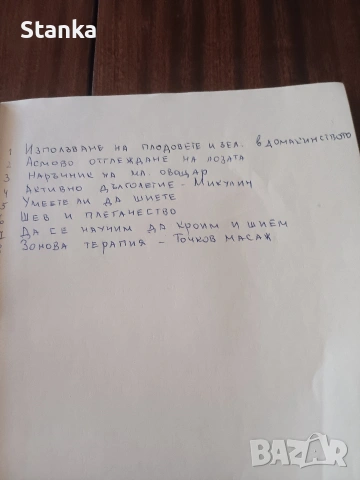 Stanka
1 Използване на плодовете и зел. в домакинството
2 Асмово отглеждане на лозата
3 Наръчник на мл. овощар
4 Активно дълголетие - Микулин
5 Умеете ли да шиете
6 Шев и плетачество
7 Да се научим да кроим и шием
8 Зонова терапия - Точков масаж
BAZAR